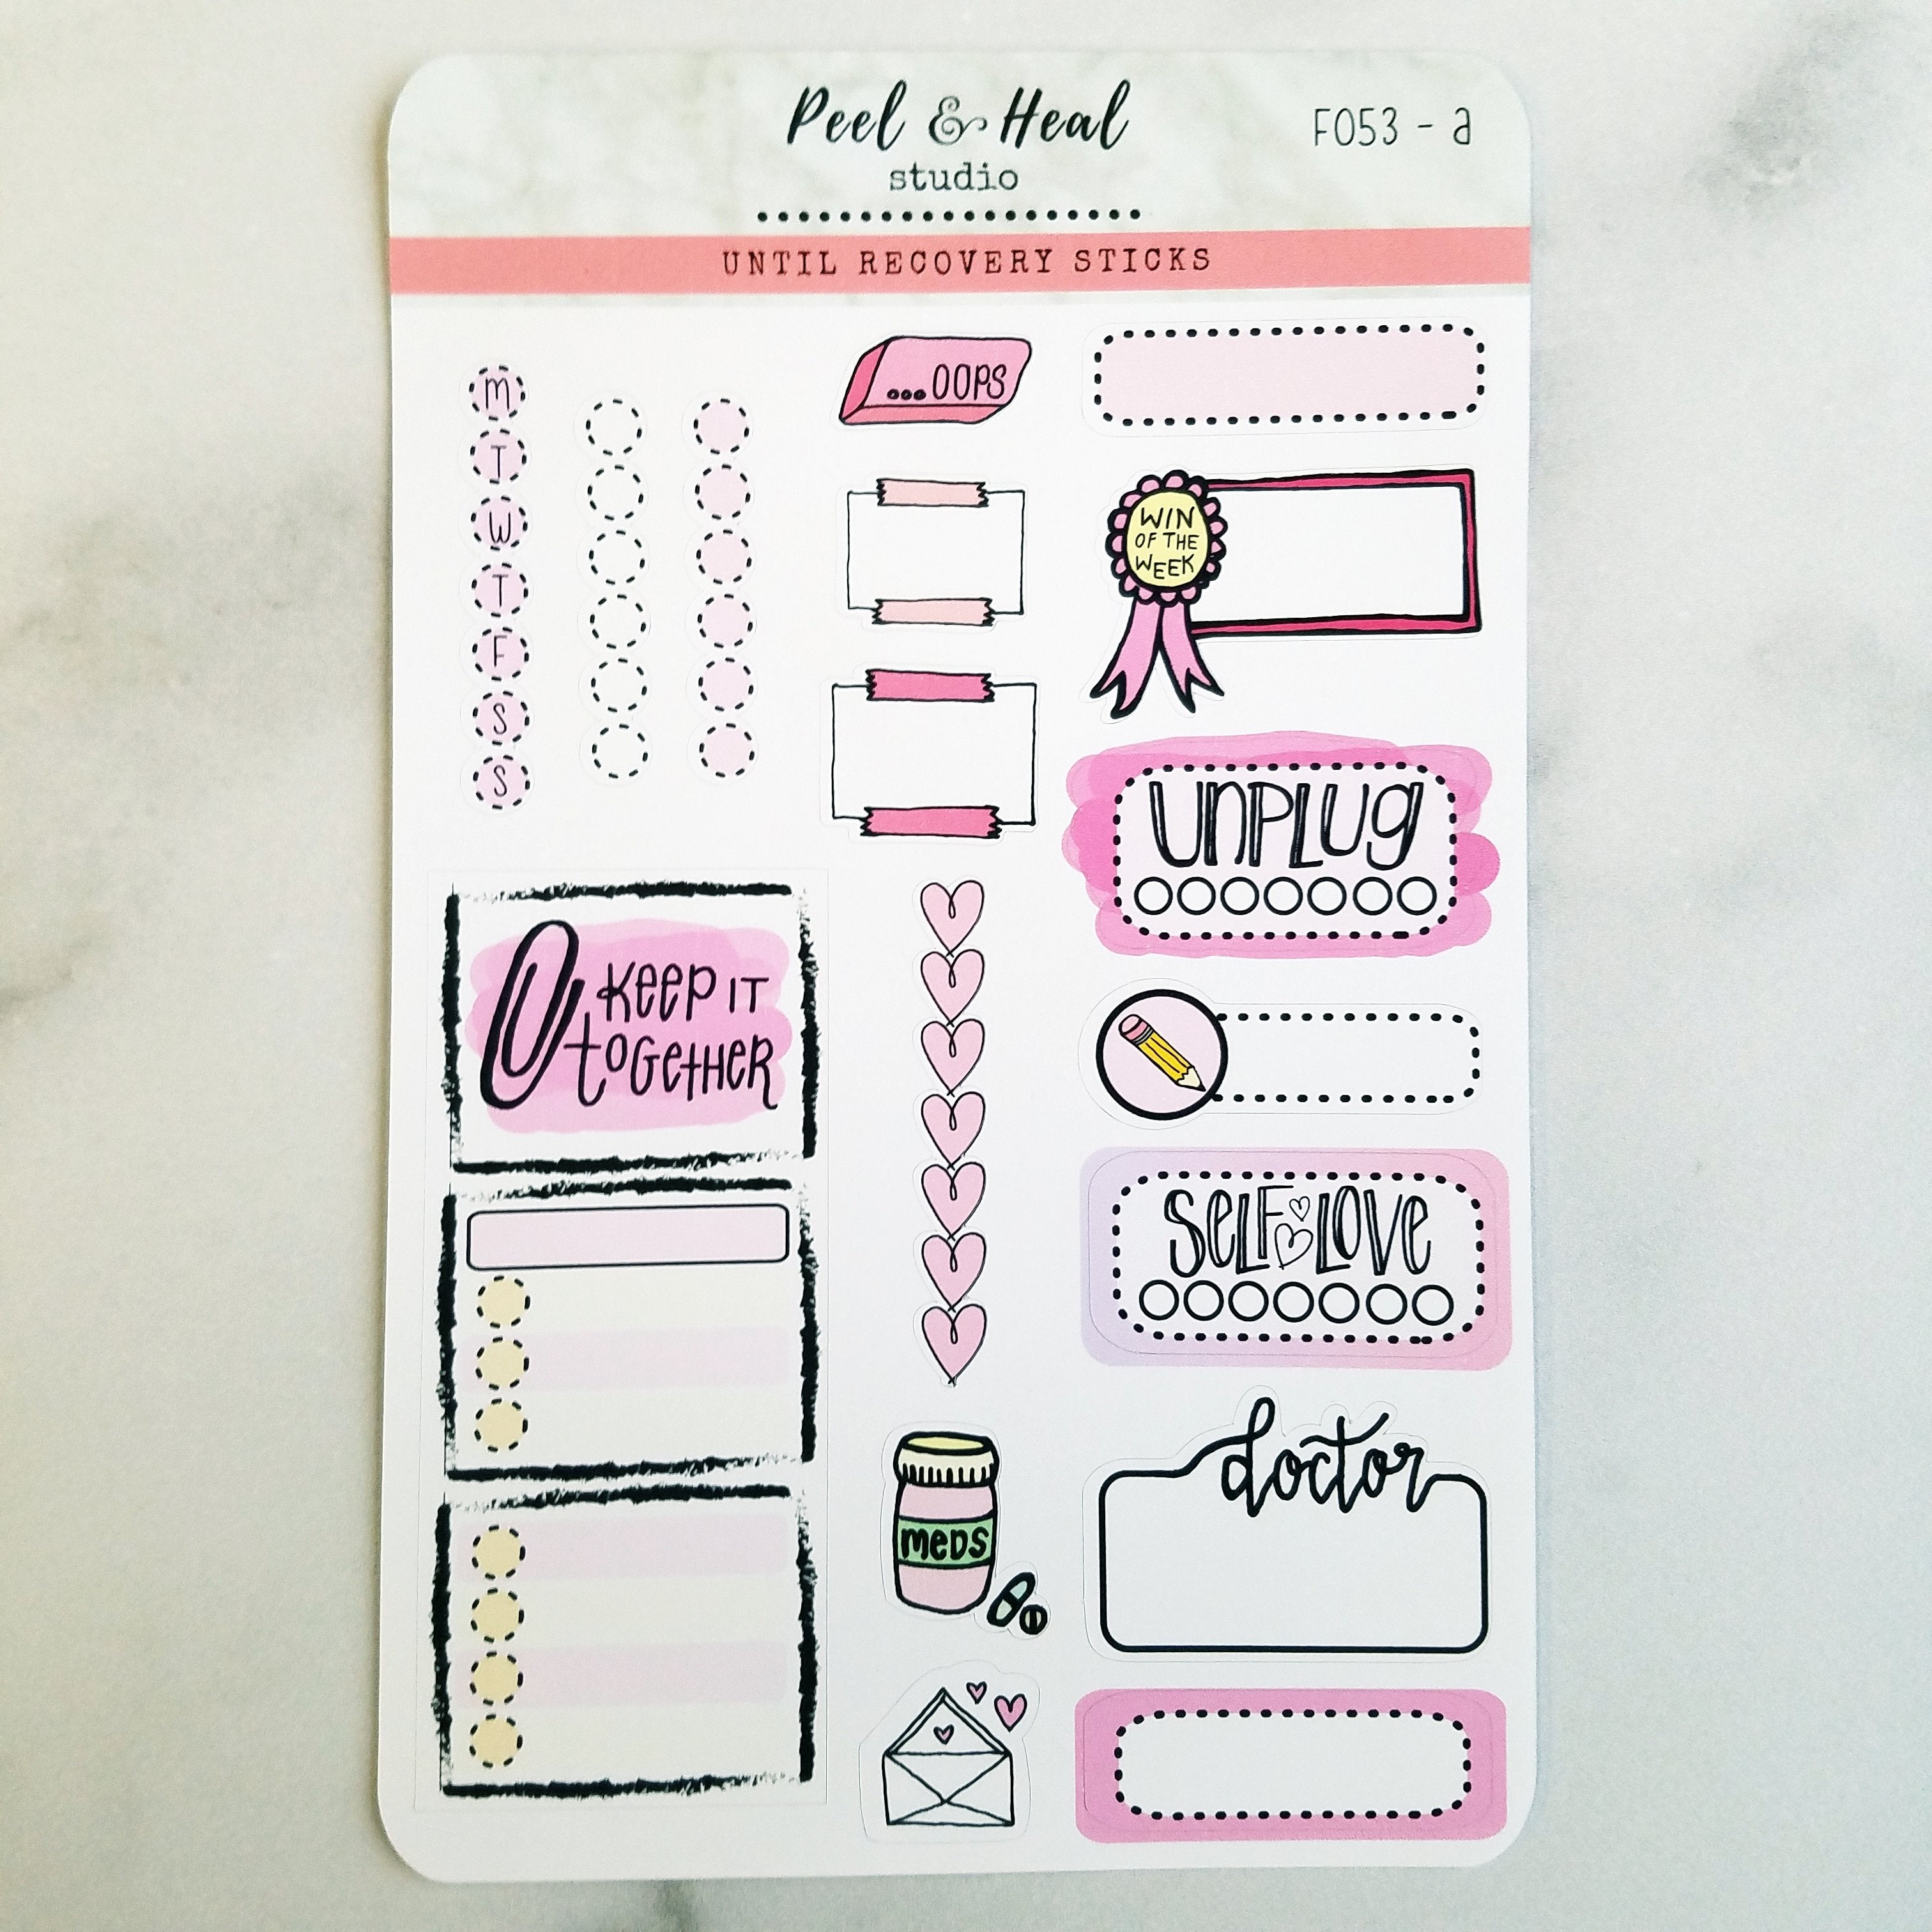 Peel & Heal
studio
F053 - a
UNTIL RECOVERY STICKS
M
T
W
T
F
S
S
...OOPS
WIN
OF THE
WEEK
UNPLUG
KEEP IT
TOGETHER
SELF LOVE
doctor
MEDS